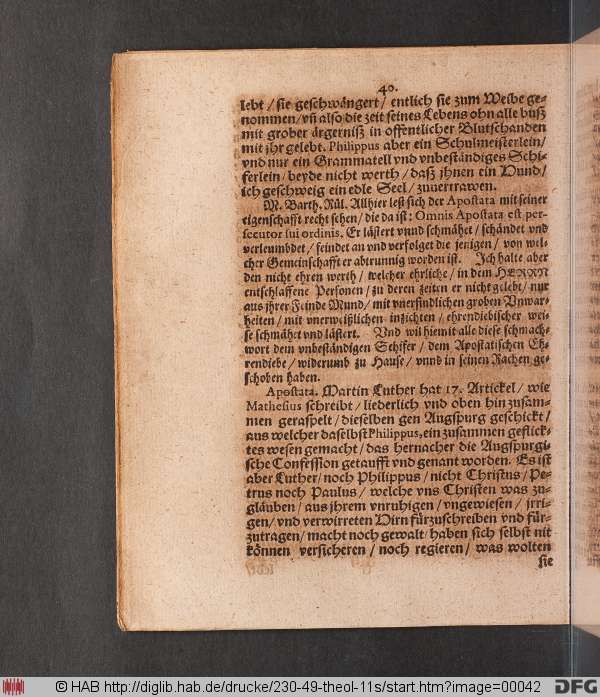 40.
lebt / sie geschwängert / entlich sie zum Weibe ge-
nommen / vñ also die zeit seines Lebens ohn alle buß
mit grober ärgerniß in offentlicher Blutschanden
mit jhr gelebt. Philippus aber ein Schulmeisterlein /
vnd nur ein Grammatell vnd vnbeständiges Schi-
ferlein / beyde nicht werth / daß jhnen ein Hund /
ich geschweig ein edle Seel / zuuertrawen.
M. Barth. Rül. Allhier lest sich der Apostata mit seiner
eigenschafft recht sehen / die da ist: Omnis Apostata est per-
secutor sui ordinis. Er lästert vnnd schmähet / schändet vnd
verleumbdet / feindet an vnd verfolget die jenigen / von wel-
cher Gemeinschafft er abtrunnig worden ist. Ich halte aber
den nicht ehren werth / welcher ehrliche / in dem HERRN
entschlaffene Personen / zu deren zeiten er nicht gelebt / nur
aus jhrer Feinde Mund / mit vnerfindlichen groben Vnwar-
heiten / mit vnerweißlichen inzichten / ehrendiebischer wei-
se schmähet vnd lästert. Vnd wil hiemit alle diese schmach-
wort dem vnbeständigen Schifer / dem Apostatischen Eh-
rendiebe / widerumb zu Hause / vnnd in seinen Rachen ge-
schoben haben.
Apostata. Martin Luther hat 17. Artickel / wie
Mathesius schreibt / liederlich vnd oben hin zusam-
men geraspelt / dieselben gen Augspurg geschickt /
aus welcher daselbst Philippus, ein zusammen geflick-
tes wesen gemacht / das hernacher die Augspurgi-
sche Confession getaufft vnd genant worden. Es ist
aber Luther / noch Philippus / nicht Christus / Pe-
trus noch Paulus / welche vns Christen was zu-
gläuben / aus jhrem vnruhigen / vngewiesen / jrri-
gen / vnd verwirreten Hirn fürzuschreiben vnd für-
zutragen / macht noch gewalt / haben sich selbst nit
können versicheren / noch regieren / was wolten
sie
© HAB http://diglib.hab.de/drucke/230-49-theol-11s/start.htm?image=00042
DFG